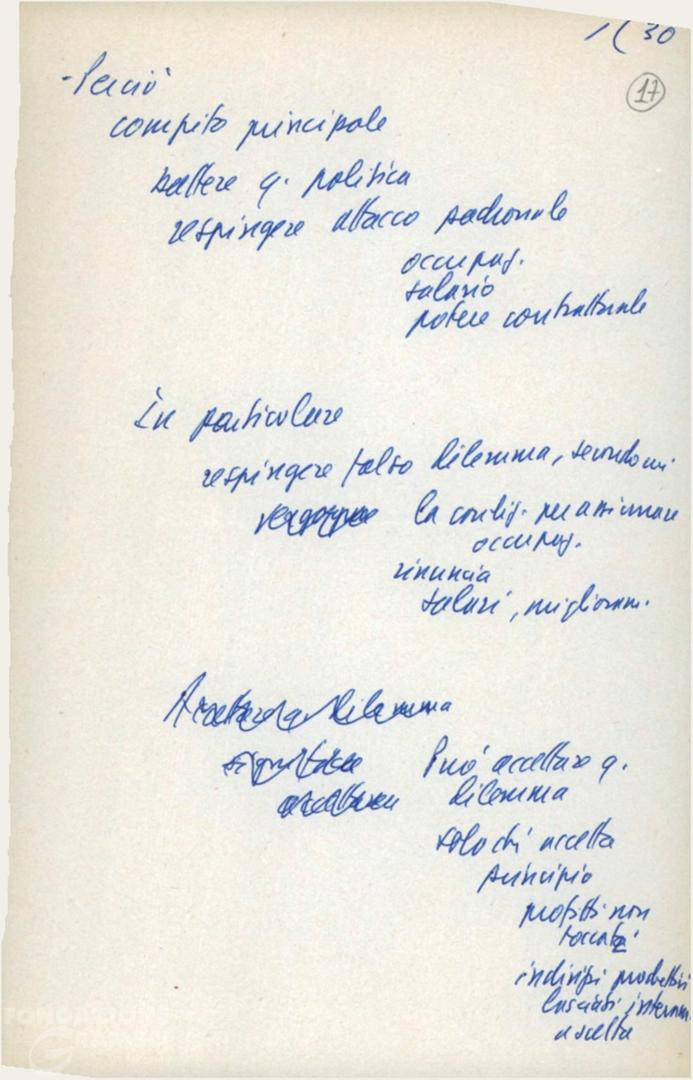 1(30
17
- Perciò
compito principale
battere q. politica
respingere attacco padronale
occupaz.
salario
potere contrattuale
In particolare
respingere falso dilemma, secondo cui
la condiz. per assicurare
occupaz.
rinuncia
salari, miglioram.
Accettare q. dilemma
significa Può accettare q.
accettare dilemma
solo chi accetta
principio
profitti non
toccati
indirizzi produttivi
lasciati
a scelta
FONDAZIONE